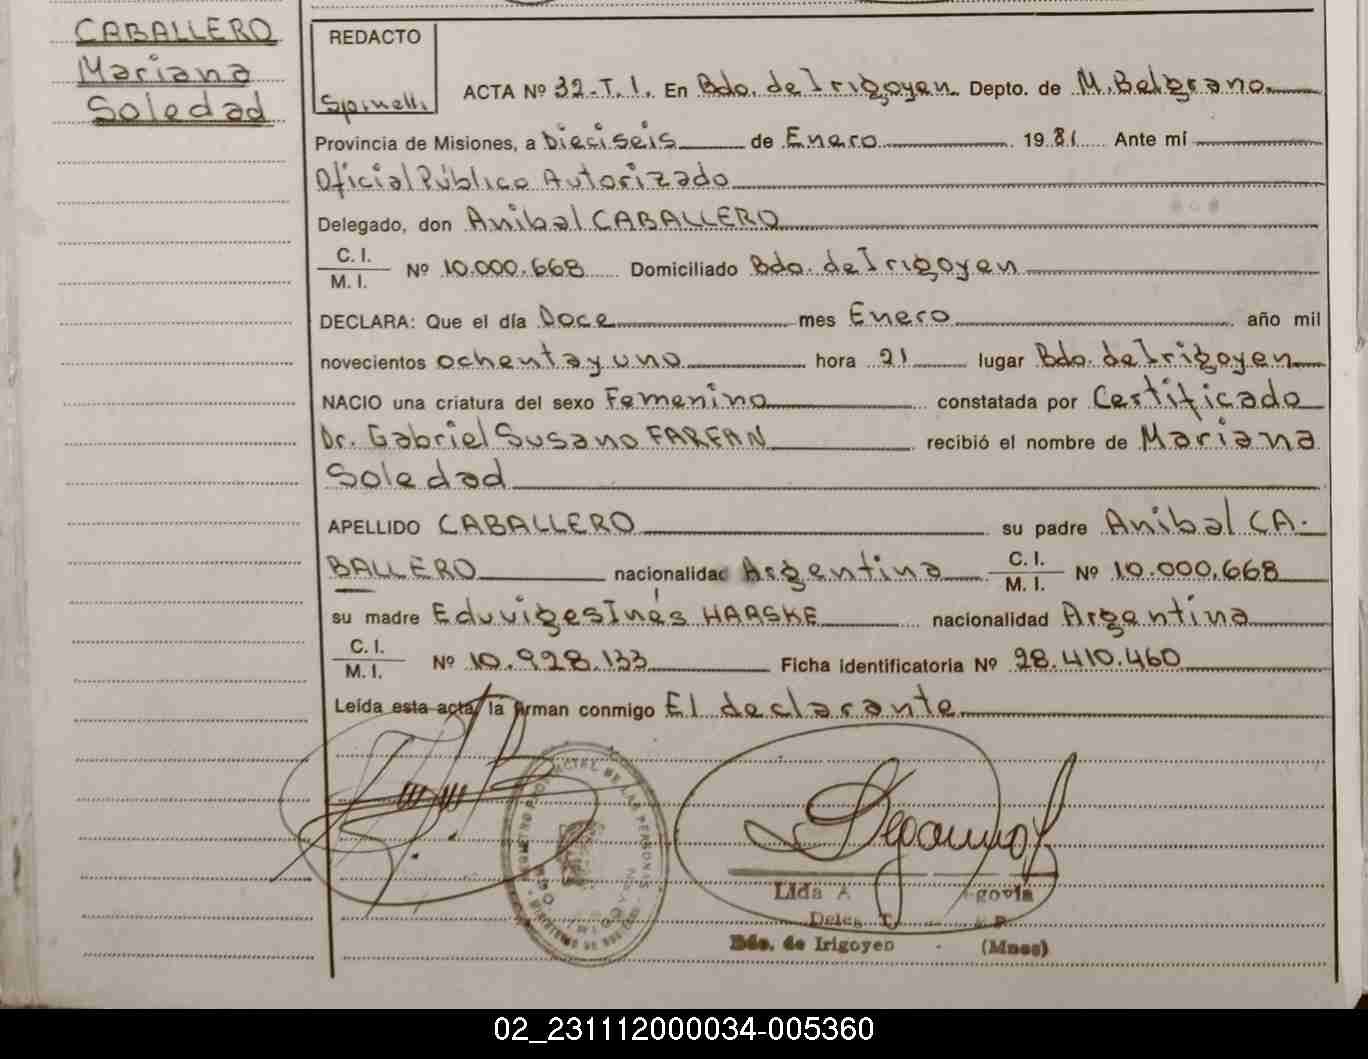 CABALLERO
Mariana
Soledad
REDACTO
Spinelli
ACTA Nº 32-T.1. En Bdo. de Irigoyen Depto. de M. Belgrano
Provincia de Misiones, a Dieciseis de Enero 1981 Ante mí
Oficial Público Autorizado
Delegado, don Anibal CABALLERO
C. I.
M. I. Nº 10.000.668 Domiciliado Bdo. de Irigoyen
DECLARA: Que el día Doce mes Enero año mil
novecientos ochenta y uno hora 21 lugar Bdo. de Irigoyen
NACIO una criatura del sexo Femenino constatada por Certificado
Dr. Gabriel Susano FARFAN recibió el nombre de Mariana
Soledad
APELLIDO CABALLERO su padre Anibal CA-
BALLERO nacionalidad Argentina C. I. M. I. Nº 10.000.668
su madre Eduviges Inés HAASKE nacionalidad Argentina
C. I.
M. I. Nº 10.928.133 Ficha identificatoria Nº 28.410.460
Leída esta acta, la firman conmigo El declarante
Lida A
Bdo. de Irigoyen - (Mnes)
02_231112000034-005360